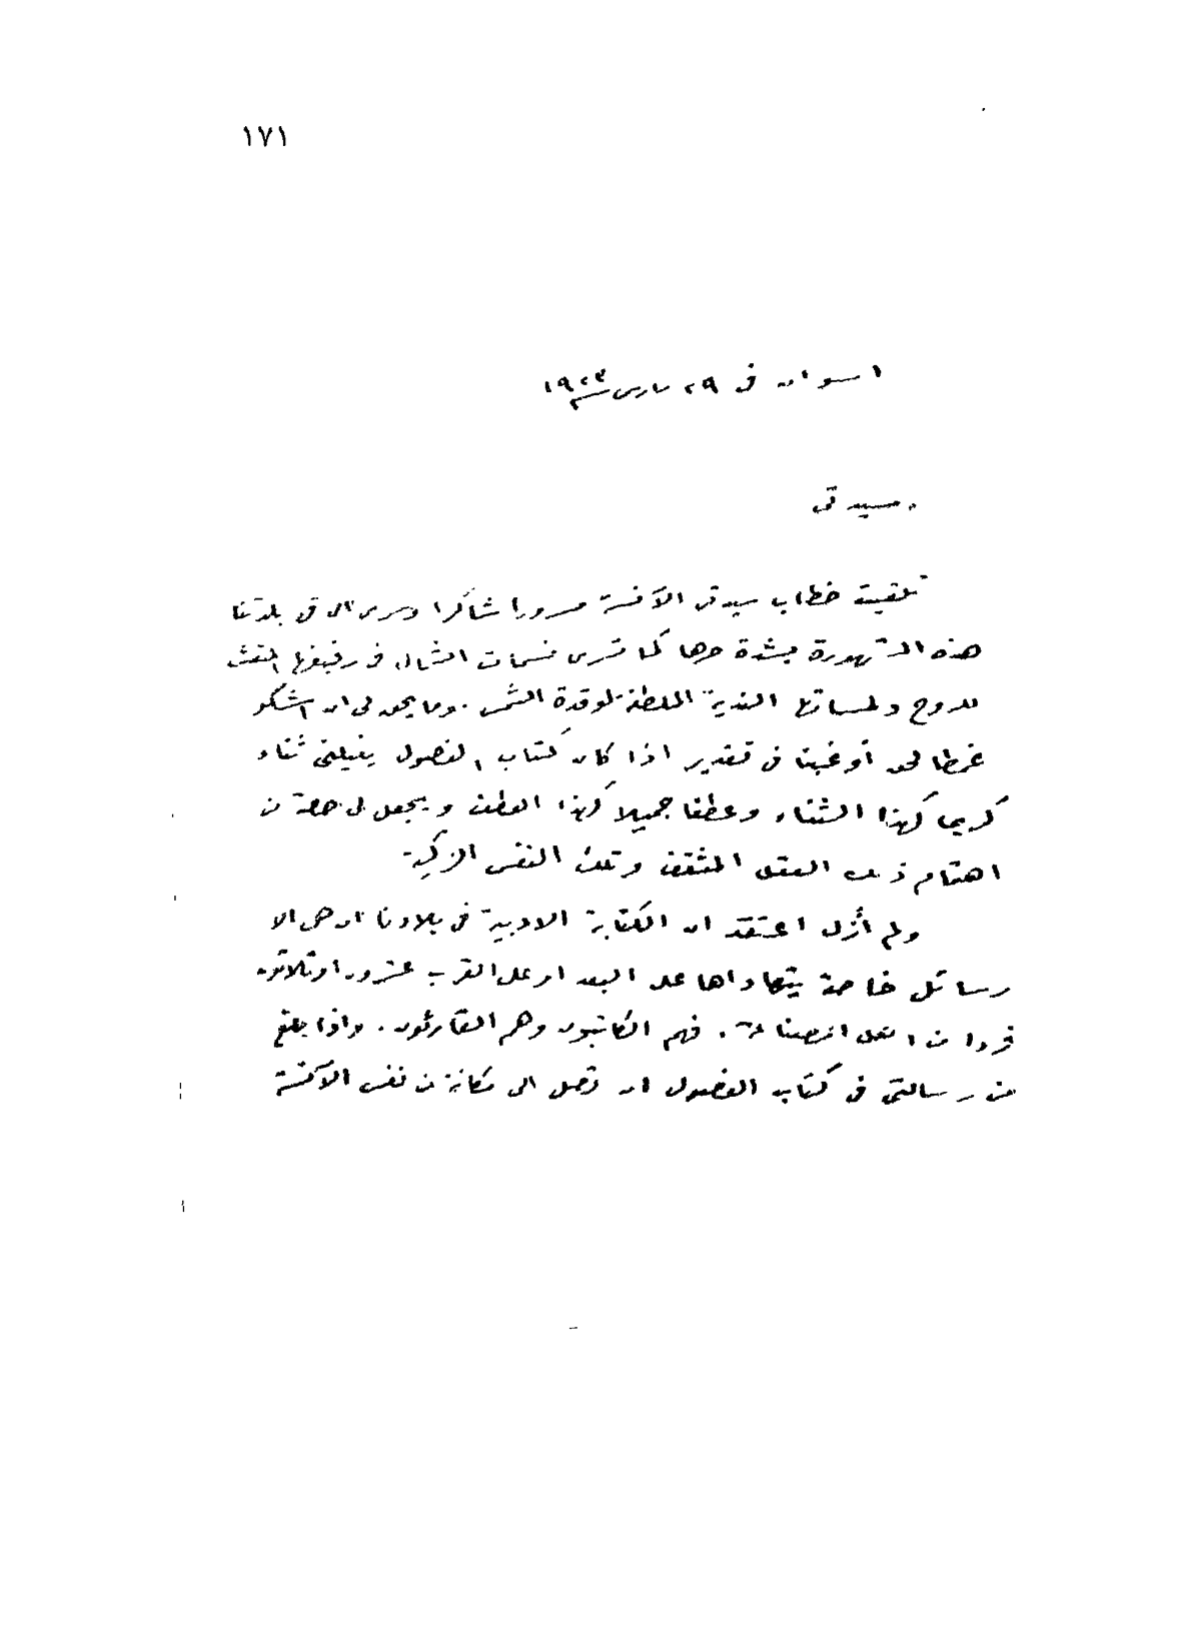 ١٧١
اسوان فى ٢٩ مارس سنة ١٩٢٣
سيدتى
تلقيت خطاب سيدتى الآنسة مسرورا شاكرا وسرى الى فى بلدتنا
هذه المشهورة بشدة حرها كما تسرى نسمات الشمال فى رفيفها المنعش
للروح ولمساتها الندية الملطفة لوقدة الشمس. وما يحق لى ان اشكو
غمطا لحق أو غبنا فى تقدير اذا كان كتاب الفصول ينيلنى ثناء
كريما كهذا الثناء وعطفا جميلا كهذا العطف ويجعل لى حصة من
اهتمام ذلك العقل المثقف وتلك النفس الزكية
ولم أزل اعتقد ان الكتابة الادبية فى بلادنا ان هى الا
رسائل خاصة يتهاداها على البعد او على القرب عشرون او ثلاثون
فردا من اهل الصناعة. فهم الكاتبون وهم القارئون. واذا بلغ
من رسالتى فى كتاب الفصول ان تصل الى مكانة من نفس الآنسة